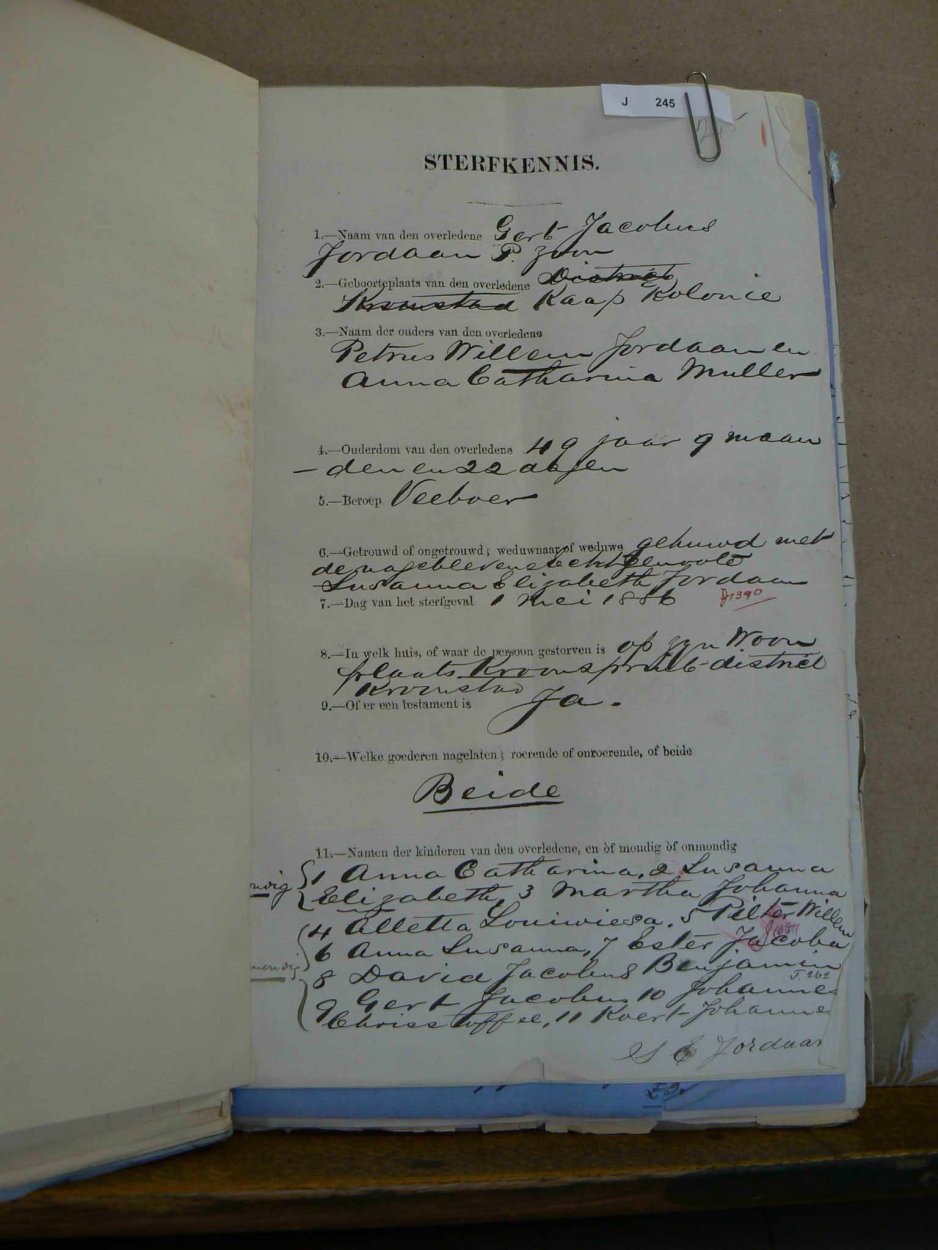 J 245
STERFKENNIS.
1.—Naam van den overledene Gert Jacobus
Jordaan P. zoon
2.—Geboorteplaats van den overledene District
Kroonstad Kaap Kolonie
3.—Naam der ouders van den overledene
Petrus Willem Jordaan en
Anna Catharina Muller
4.—Ouderdom van den overledene 49 jaar 9 maan
—den en 22 dagen
5.—Beroep Veeboer
6.—Getrouwd of ongetrouwd; weduwnaar of weduwe gehuwd met
de nageblevene Echtgenoote
Susanna Elizabeth Jordaan
7.—Dag van het sterfgeval 1 Mei 1886 J1390
8.—In welk huis, of waar de persoon gestorven is op zyn Woon
plaats Kroonspruit district
Kroonstad
9.—Of er een testament is Ja.
10.—Welke goederen nagelaten; roerende of onroerende, of beide
Beide
11.—Namen der kinderen van den overledene, en òf mondig òf onmondig
1 Anna Catharina, 2 Susanna
Elizabeth, 3 Martha Johanna
4 Alletta Louiwiesa. 5 Pieter Willem
6 Anna Susanna, 7 Ester Jacoba
8 David Jacobus Benjamin
J. 262
9 Gert Jacobus 10 Johannes
Christoffee, 11 Koert Johannes
S E Jordaan